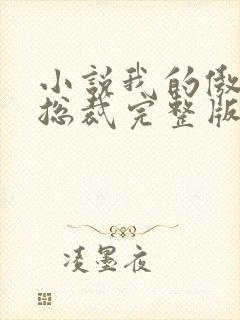 小説我的傲
总裁完整版
凌墨夜